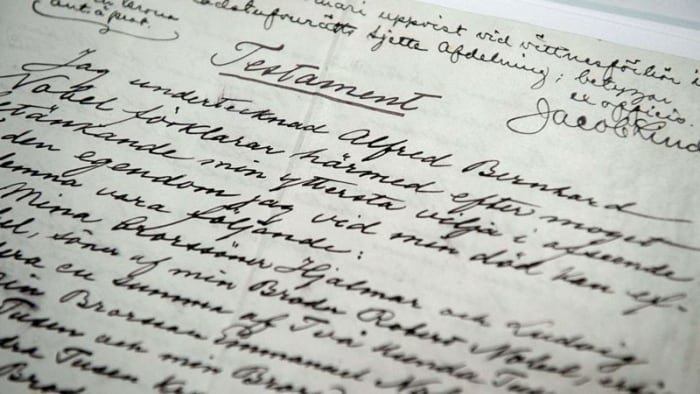 uppvist vid vittnesförhör i
Rådstufvurätts sjette afdelning; betygar
ex officio
Jacob
Testament
Jag undertecknad Alfred Bernhard
Nobel förklarar härmed efter moget
betänkande min yttersta vilja i afseende
den egendom jag vid min död kan ef-
lemna vara följande:
Mina Brorssöner Hjalmar och Ludvig
söner af min Broder Robert Nobel,
en summa af Två Hundra Tusen
min Brorson Emmanuel
Tusen och min
Tusen